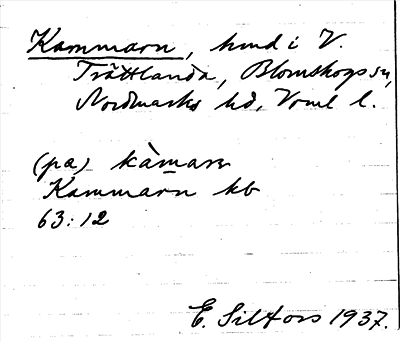 Kammarn, hmd i V.
Trättlanda, Blomskogs sn,
Nordmarks hd, Vrml l.
(pa) kàmarn
Kammarn kb
63:12
E. Silfors 1937.